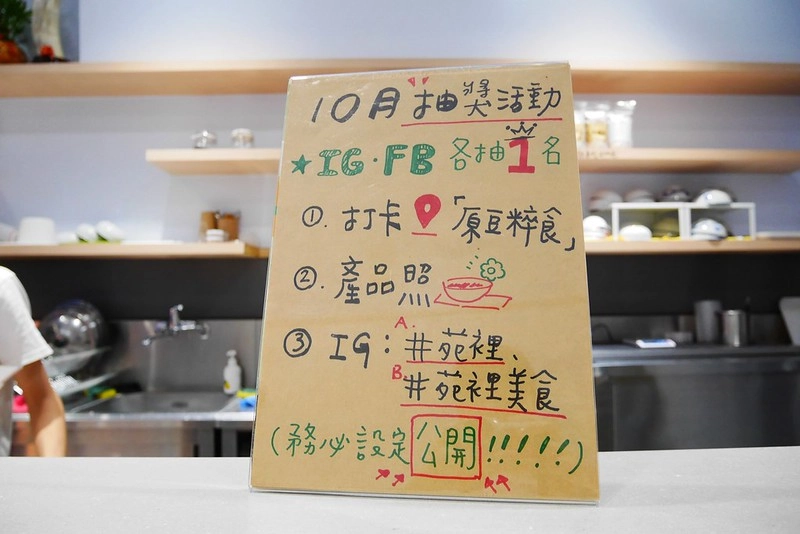 10月抽獎活動
★IG·FB 各抽1名
①. 打卡「原豆粹食」
②. 產品照
③ IG: A. #苑裡、
B. #苑裡美食
(務必設定公開!!!!!)